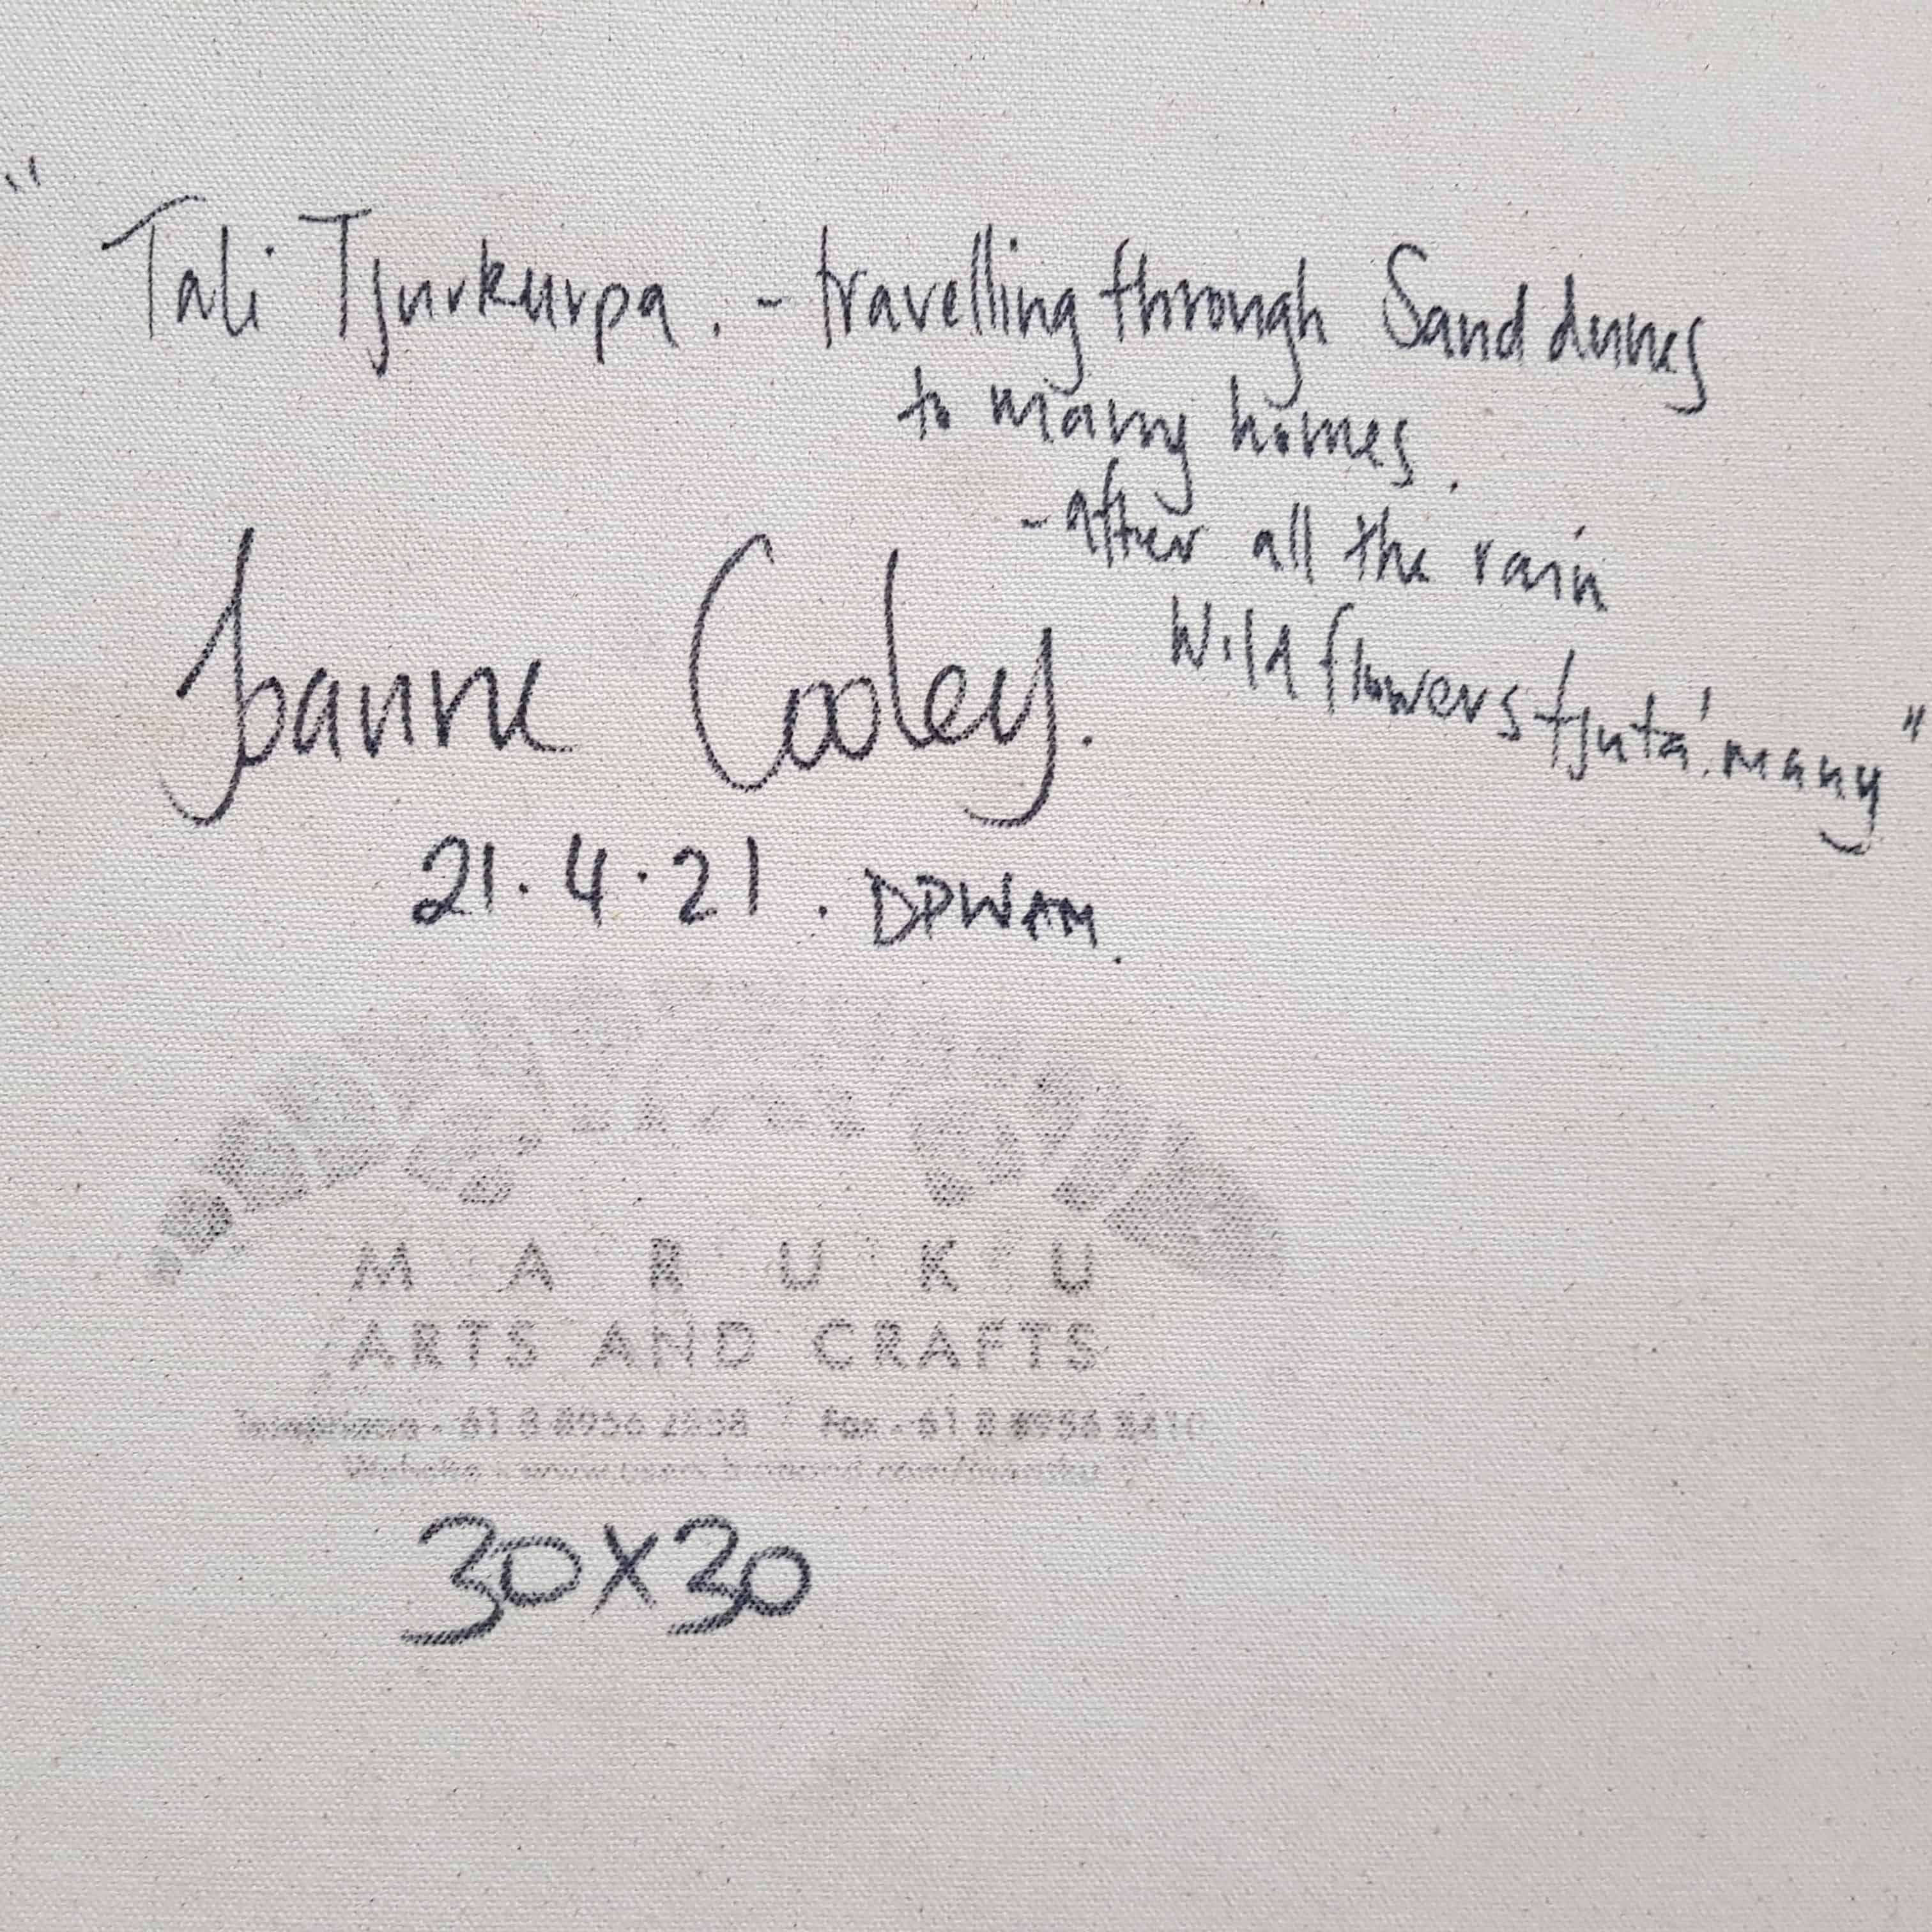 "Tali Tjurkurpa. - travelling through Sand dunes
to many homes.
- after all the rain
Wild flowers tjuta! many"
Joanne Cooley.
21.4.21. DPWAM.
MARUKU
ARTS AND CRAFTS
Telephone - 61 8 8956 2558 Fax - 61 8 8956
30x30